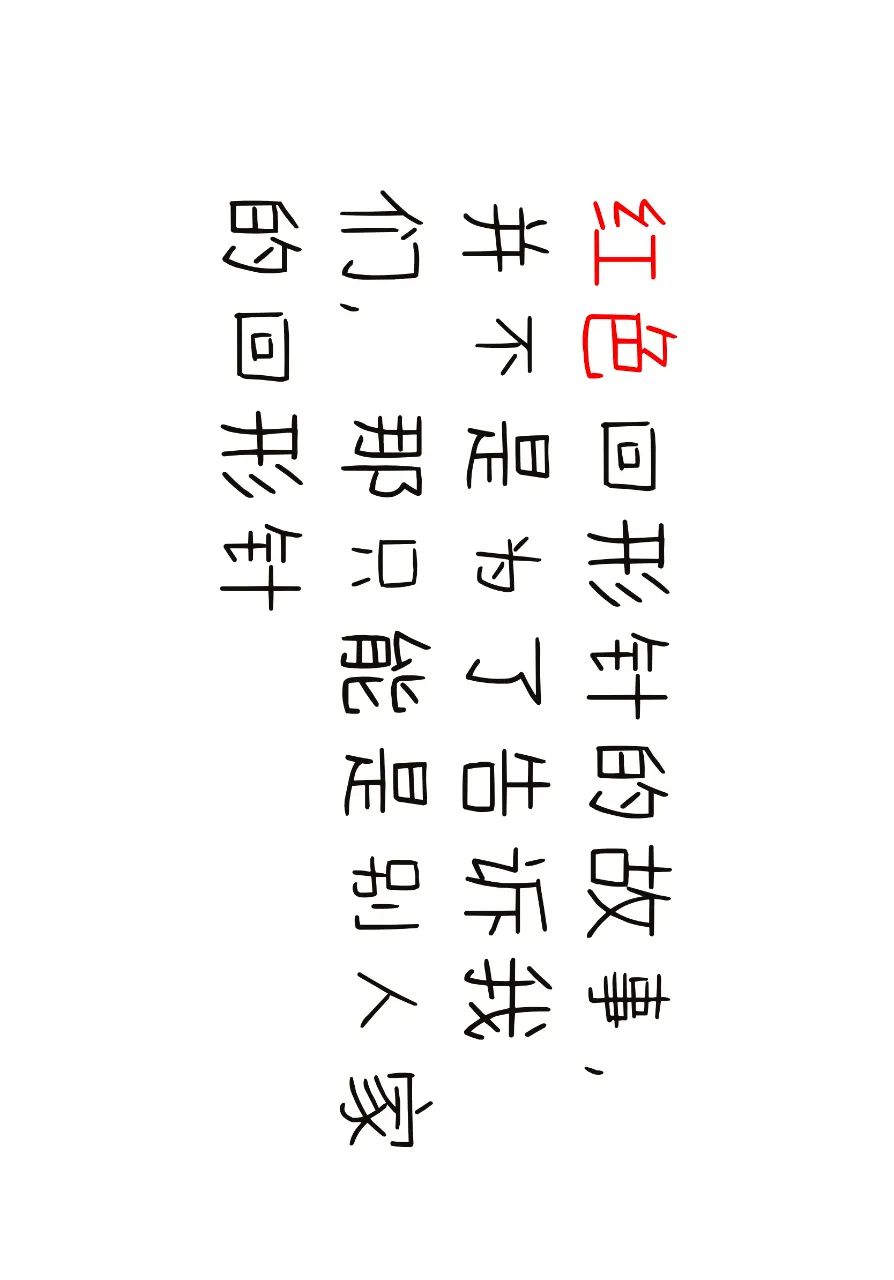 红色回形针的故事,
并不是为了告诉我
们,那只能是别人家
的回形针